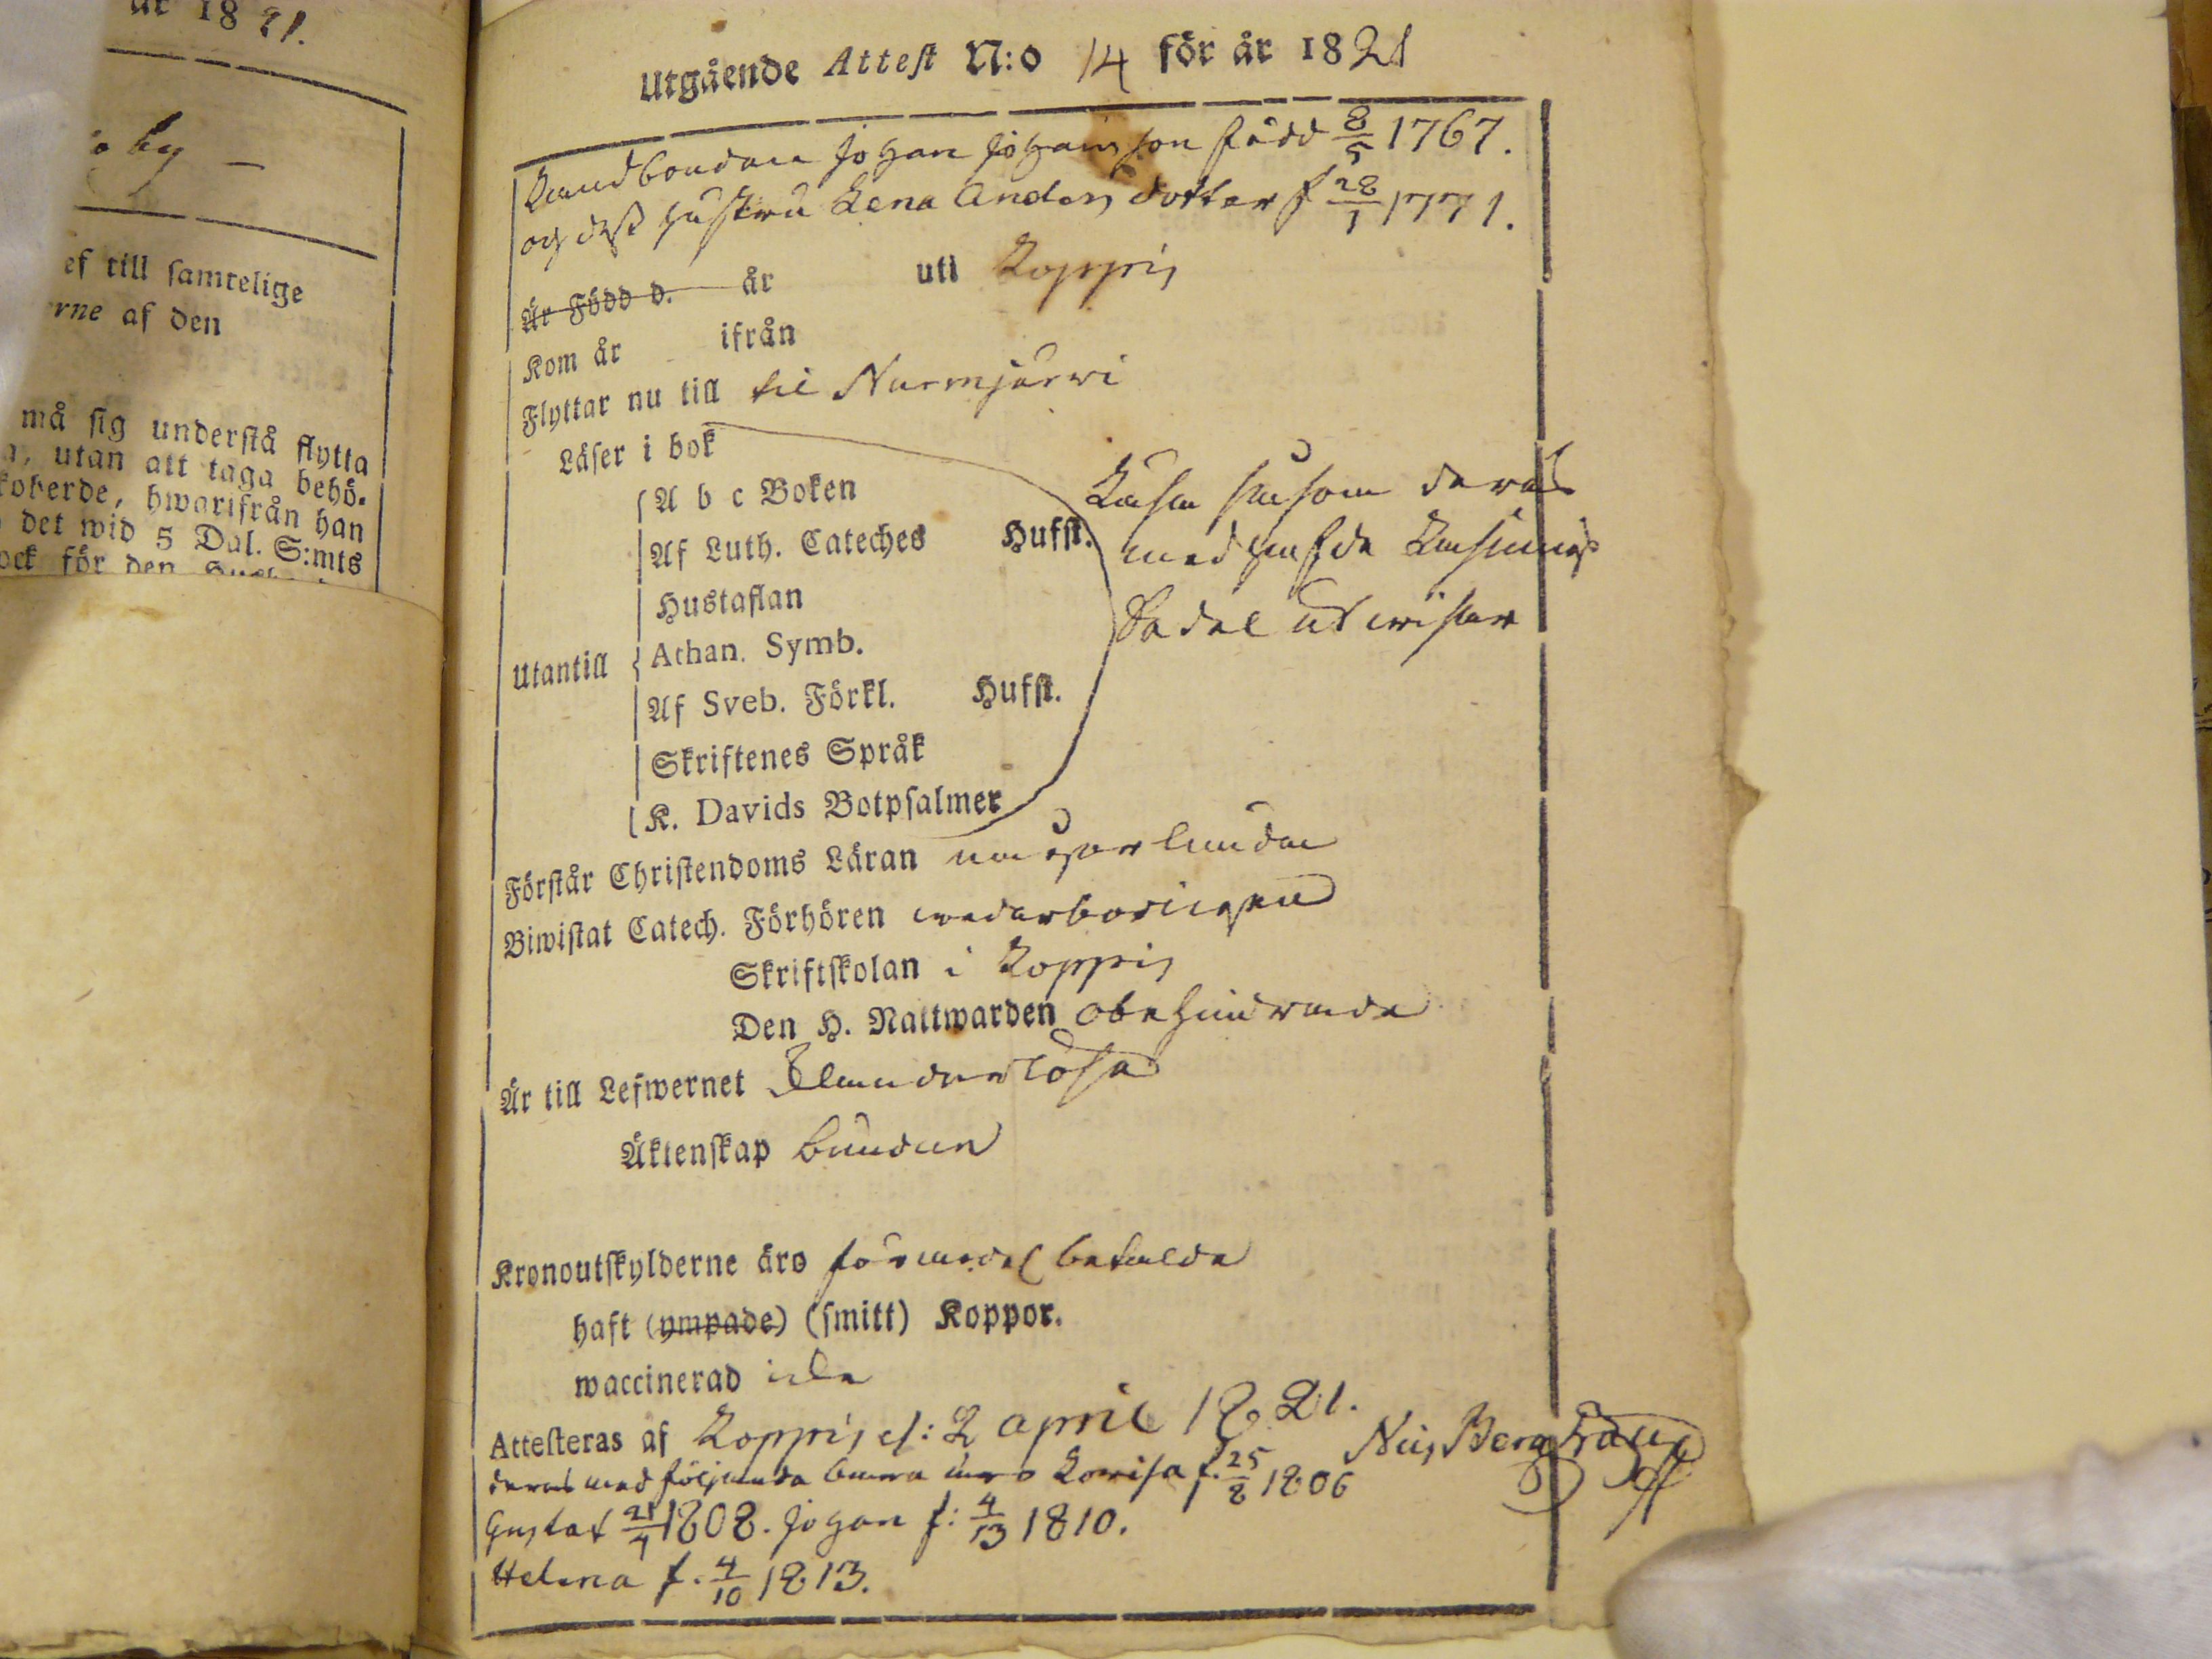 år 1821.
by —
ef till samtelige
rne af den
må sig understå flytta
utan att taga behö-
hwarifrån han
det wid 5 Dal. S:mts
ock för den
Utgående Attest N:o 14 för år 1821
Landbonden Johan Johansson född 8/5 1767.
och dess hustru Lena Anders dotter f 28/1 1771.
Är Född d. år uti Loppis
Kom år ifrån
Flyttar nu till til Nurmijärwi
Läser i bok
A b c Boken
Af Luth. Cateches Hufst.
Hustaflan
Utantill Athan. Symb.
Af Sveb. Förkl. Hufst.
Skriftenes Språk
K. Davids Botpsalmer
Läsa såsom deras
medhafde Läsnings
Sedel utwisar
Förstår Christendoms Läran någorlunda
Biwistat Catech. Förhören wederbörligen
Skriftskolan i Loppis
Den H. Nattwarden obehindrade
Är till Lefwernet Klanderlösa
Äktenskap bunden
Kronoutskylderne äro betalde
haft (ympade) (smitt) Koppor.
waccinerad icke
Attesteras af Loppis d: 2 April 1821.
deras med följande barn äro Lovisa f. 25/8 1806
Gustaf 21/4 1808. Johan f: 4/13 1810.
Helena f. 4/10 1813.